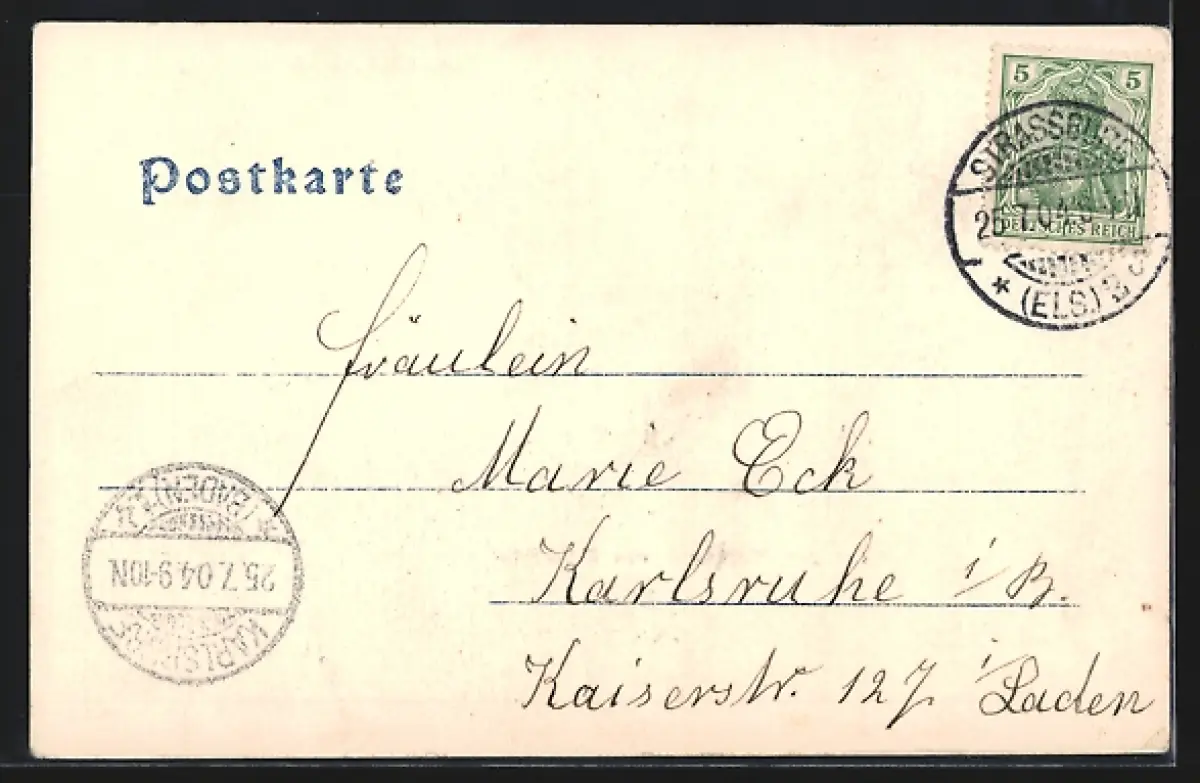 5 5
STRASSBURG
25.7.04.
DEUTSCHES REICH
* (ELS.)
Postkarte
Fräulein
Marie Eck
Karlsruhe i/B.
Kaiserstr. 127 i/Laden
KARLSRUHE
25.7.04.9-10N.
* (BADEN)